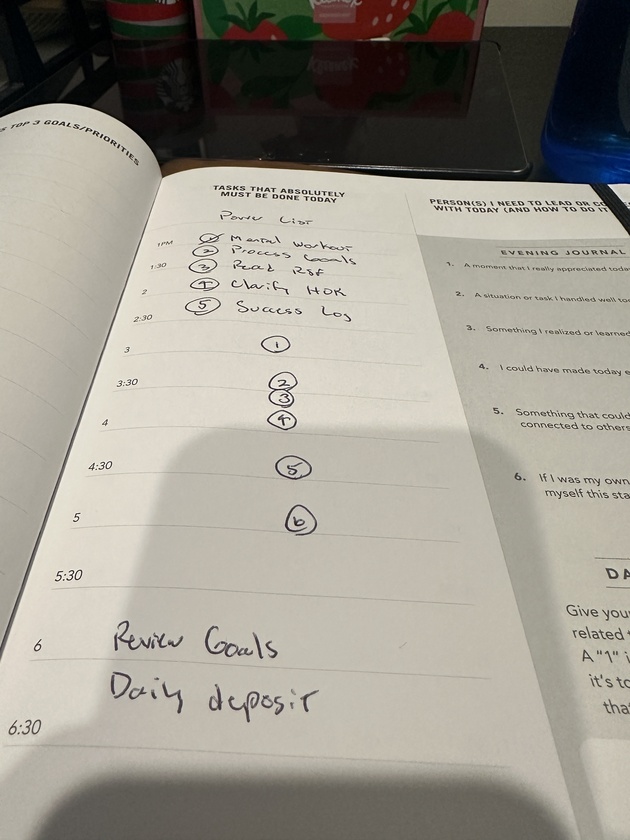 S TOP 3 GOALS/PRIORITIES
TASKS THAT ABSOLUTELY
MUST BE DONE TODAY
Power List
1PM ① Mental Workout
② Process Goals
1:30 ③ Read
2 ④ Clarify HOK
2:30 ⑤ Success Log
3 ①
3:30 ②
③
4 ④
4:30 ⑤
5 ⑥
5:30
6 Review Goals
Daily deposit
6:30
PERSON(S) I NEED TO LEAD OR CO
WITH TODAY (AND HOW TO DO IT
EVENING JOURNAL
1. A moment that I really appreciated today
2. A situation or task I handled well to
3. Something I realized or learned
4. I could have made today e
5. Something that could
connected to others
6. If I was my own
myself this sta
DA
Give your
related
A "1" i
it's to
tha